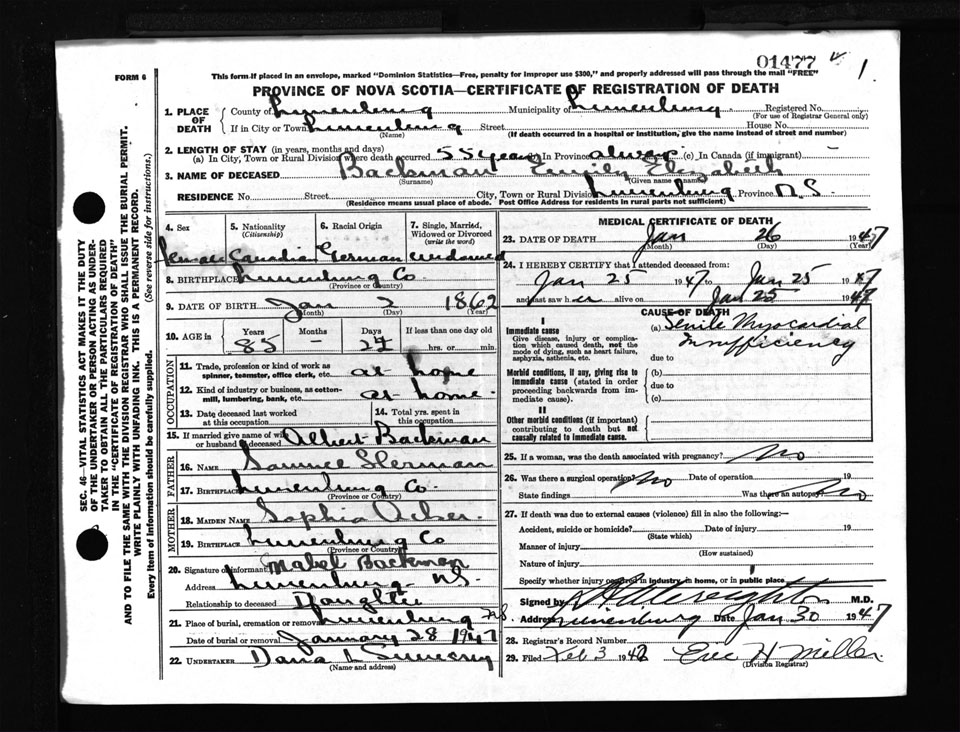 01477
1.
FORM 6
This form if placed in an envelope, marked "Dominion Statistics—Free, penalty for improper use $300," and properly addressed will pass through the mail "FREE"
PROVINCE OF NOVA SCOTIA—CERTIFICATE OF REGISTRATION OF DEATH
SEC. 46—VITAL STATISTICS ACT MAKES IT THE DUTY
OF THE UNDERTAKER OR PERSON ACTING AS UNDER-
TAKER TO OBTAIN ALL THE PARTICULARS REQUIRED
IN THE "CERTIFICATE OF REGISTRATION OF DEATH"
AND TO FILE THE SAME WITH THE DIVISION REGISTRAR WHO SHALL ISSUE THE BURIAL PERMIT.
WRITE PLAINLY WITH UNFADING INK. THIS IS A PERMANENT RECORD.
Every item of Information should be carefully supplied. (See reverse side for instructions.)
1. PLACE OF DEATH County of Lunenburg Municipality of Lunenburg Registered No.
(For use of Registrar General only)
If in City or Town Lunenburg Street House No.
(Name) (If death occurred in a hospital or institution, give the name instead of street and number)
2. LENGTH OF STAY (in years, months and days)
(a) In City, Town or Rural Division where death occurred 55 years (b) In Province always (c) In Canada (if immigrant) —
3. NAME OF DECEASED Backman Emily Elizabeth
(Surname) (Given name or names)
RESIDENCE No. Street City, Town or Rural Division Lunenburg Province N.S.
(Residence means usual place of abode. Post Office Address for residents in rural parts not sufficient)
4. Sex 5. Nationality (Citizenship) 6. Racial Origin 7. Single, Married, Widowed or Divorced (write the word)
female Canadian German widowed
8. BIRTHPLACE Lunenburg Co.
(Province or Country)
9. DATE OF BIRTH Jan 2 1862
(Month) (Day) (Year)
10. AGE in Years Months Days If less than one day old
85 — 24 hrs. or min.
OCCUPATION
11. Trade, profession or kind of work as spinner, teamster, office clerk, etc. at home
12. Kind of industry or business, as cotton-mill, lumbering, bank, etc. at home
13. Date deceased last worked at this occupation 14. Total yrs. spent in this occupation
15. If married give name of wife or husband of deceased Albert Backman
FATHER
16. NAME
17. BIRTHPLACE Lunenburg Co.
(Province or Country)
MOTHER
18. MAIDEN NAME Sophia
19. BIRTHPLACE Lunenburg Co
(Province or Country)
20. Signature of informant Mabel Backman
Address Lunenburg N.S.
Relationship to deceased Daughter
21. Place of burial, cremation or removal Lunenburg N.S.
Date of burial or removal January 28 1947
22. UNDERTAKER Dana L Sweeny
(Name and address)
MEDICAL CERTIFICATE OF DEATH
23. DATE OF DEATH Jan 26 1947
(Month) (Day) (Year)
24. I HEREBY CERTIFY that I attended deceased from:
Jan 25 1947 to Jan 25 1947
and last saw her alive on Jan 25 1947
CAUSE OF DEATH
I
Immediate cause
Give disease, injury or complication which caused death, not the mode of dying, such as heart failure, asphyxia, asthenia, etc.
(a) Senile Myocardial
Insufficiency
due to
Morbid conditions, if any, giving rise to immediate cause (stated in order proceeding backwards from immediate cause)
(b)
due to
(c)
II
Other morbid conditions (if important) contributing to death but not causally related to immediate cause.
25. If a woman, was the death associated with pregnancy? No
26. Was there a surgical operation? No Date of operation 19
State findings Was there an autopsy? No
27. If death was due to external causes (violence) fill in also the following:—
Accident, suicide or homicide? Date of injury 19
(State which)
Manner of injury
(How sustained)
Nature of injury
Specify whether injury occurred in industry, in home, or in public place
Signed by M.D.
Address Lunenburg Date Jan 30 1947
28. Registrar's Record Number
29. Filed Feb 3 194 H Miller
(Division Registrar)